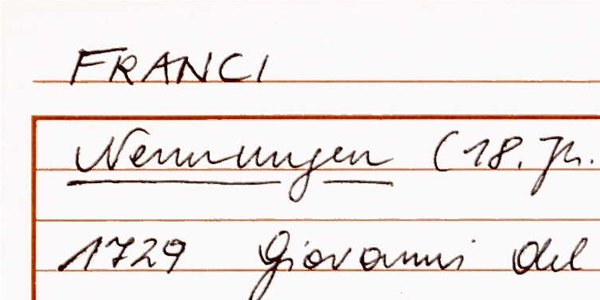 FRANCI
Nennungen (18. Jh.
1729 Giovanni del